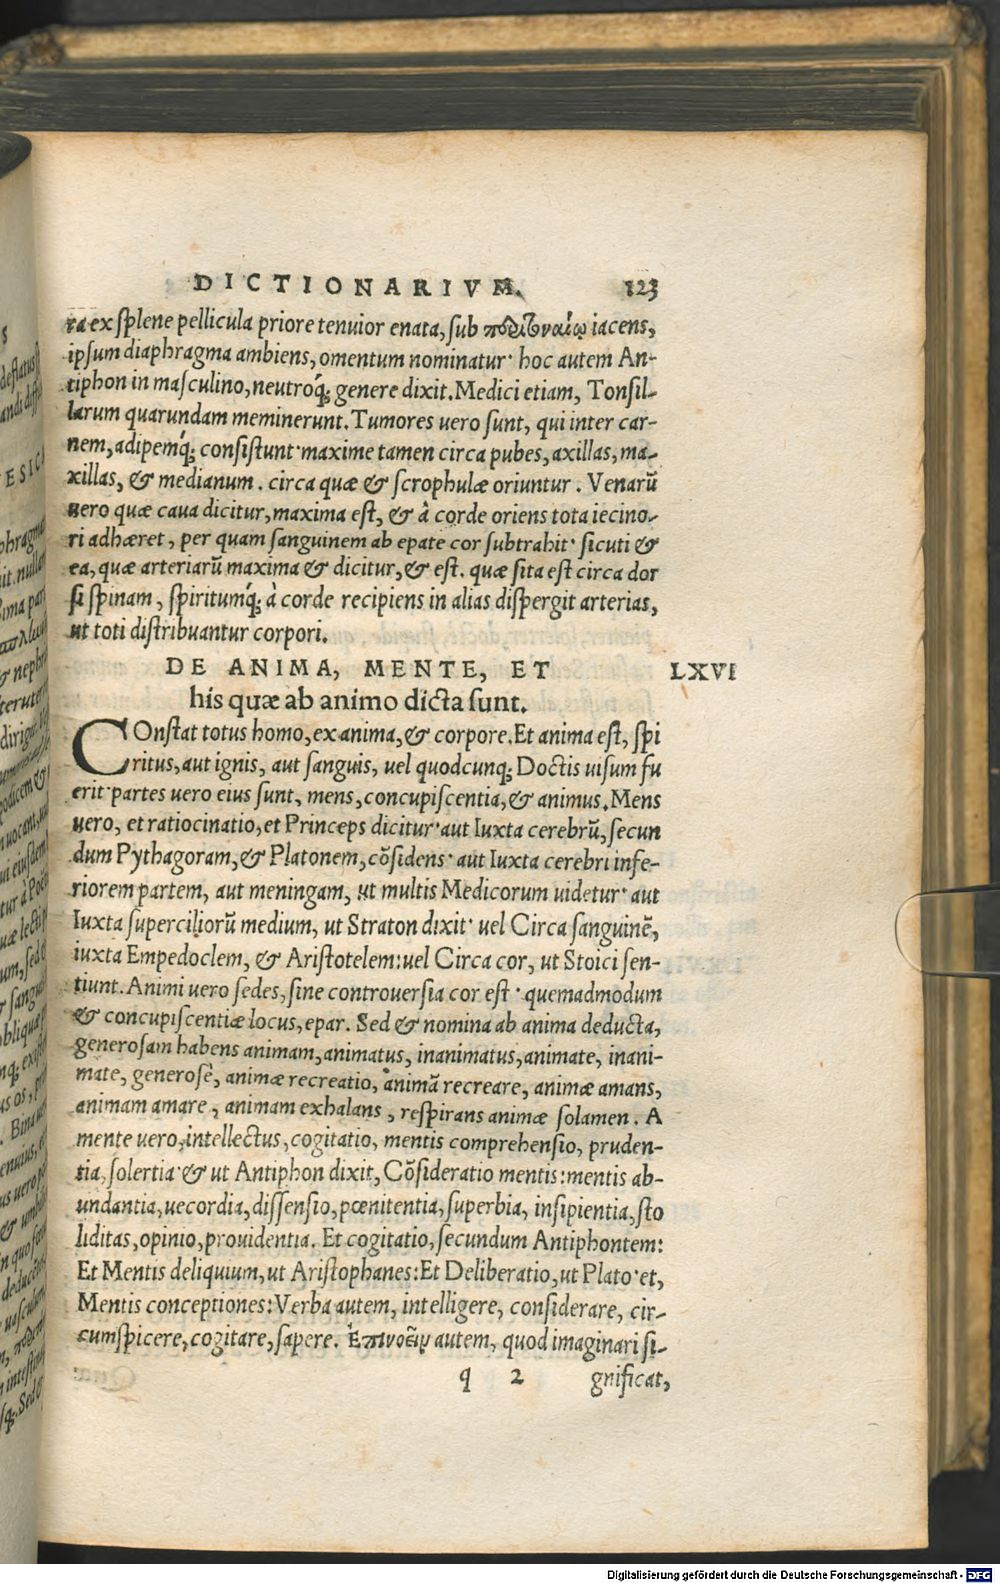 DICTIONARIVM. 123
ra ex splene pellicula priore tenuior enata, sub iacens,
ipsum diaphragma ambiens, omentum nominatur· hoc autem An-
tiphon in masculino, neutroq́; genere dixit. Medici etiam, Tonsil-
larum quarundam meminerunt. Tumores uero sunt, qui inter car-
nem, adipemq́; consistunt· maxime tamen circa pubes, axillas, ma-
xillas, & medianum. circa quæ & scrophulæ oriuntur. Venarũ
uero quæ caua dicitur, maxima est, & à corde oriens tota iecino-
ri adhæret, per quam sanguinem ab epate cor subtrahit· sicuti &
ea, quæ arteriarũ maxima & dicitur, & est. quæ sita est circa dor
si spinam, spiritumq́; à corde recipiens in alias dispergit arterias,
ut toti distribuantur corpori.
DE ANIMA, MENTE, ET LXVI
his quæ ab animo dicta sunt.
COnstat totus homo, ex anima, & corpore. Et anima est, spi
ritus, aut ignis, aut sanguis, uel quodcunq; Doctis uisum fu
erit· partes uero eius sunt, mens, concupiscentia, & animus. Mens
uero, et ratiocinatio, et Princeps dicitur· aut Iuxta cerebrũ, secun
dum Pythagoram, & Platonem, cõsidens· aut Iuxta cerebri infe-
riorem partem, aut meningam, ut multis Medicorum uidetur· aut
Iuxta superciliorũ medium, ut Straton dixit· uel Circa sanguinẽ,
iuxta Empedoclem, & Aristotelem: uel Circa cor, ut Stoici sen-
tiunt. Animi uero sedes, sine controuersia cor est· quemadmodum
& concupiscentiæ locus, epar. Sed & nomina ab anima deducta,
generosam habens animam, animatus, inanimatus, animate, inani-
mate, generosè, animæ recreatio, animã recreare, animæ amans,
animam amare, animam exhalans, respirans animæ solamen. A
mente uero, intellectus, cogitatio, mentis comprehensio, pruden-
tia, solertia· & ut Antiphon dixit, Cõsideratio mentis: mentis ab-
undantia, uecordia, dissensio, pœnitentia, superbia, insipientia, sto
liditas, opinio, prouidentia. Et cogitatio, secundum Antiphontem:
Et Mentis deliquium, ut Aristophanes: Et Deliberatio, ut Plato· et,
Mentis conceptiones: Verba autem, intelligere, considerare, cir-
cumspicere, cogitare, sapere. Ἐπινοεῖν autem, quod imaginari si-
q 2 gnificat,
Digitalisierung gefördert durch die Deutsche Forschungsgemeinschaft - DFG